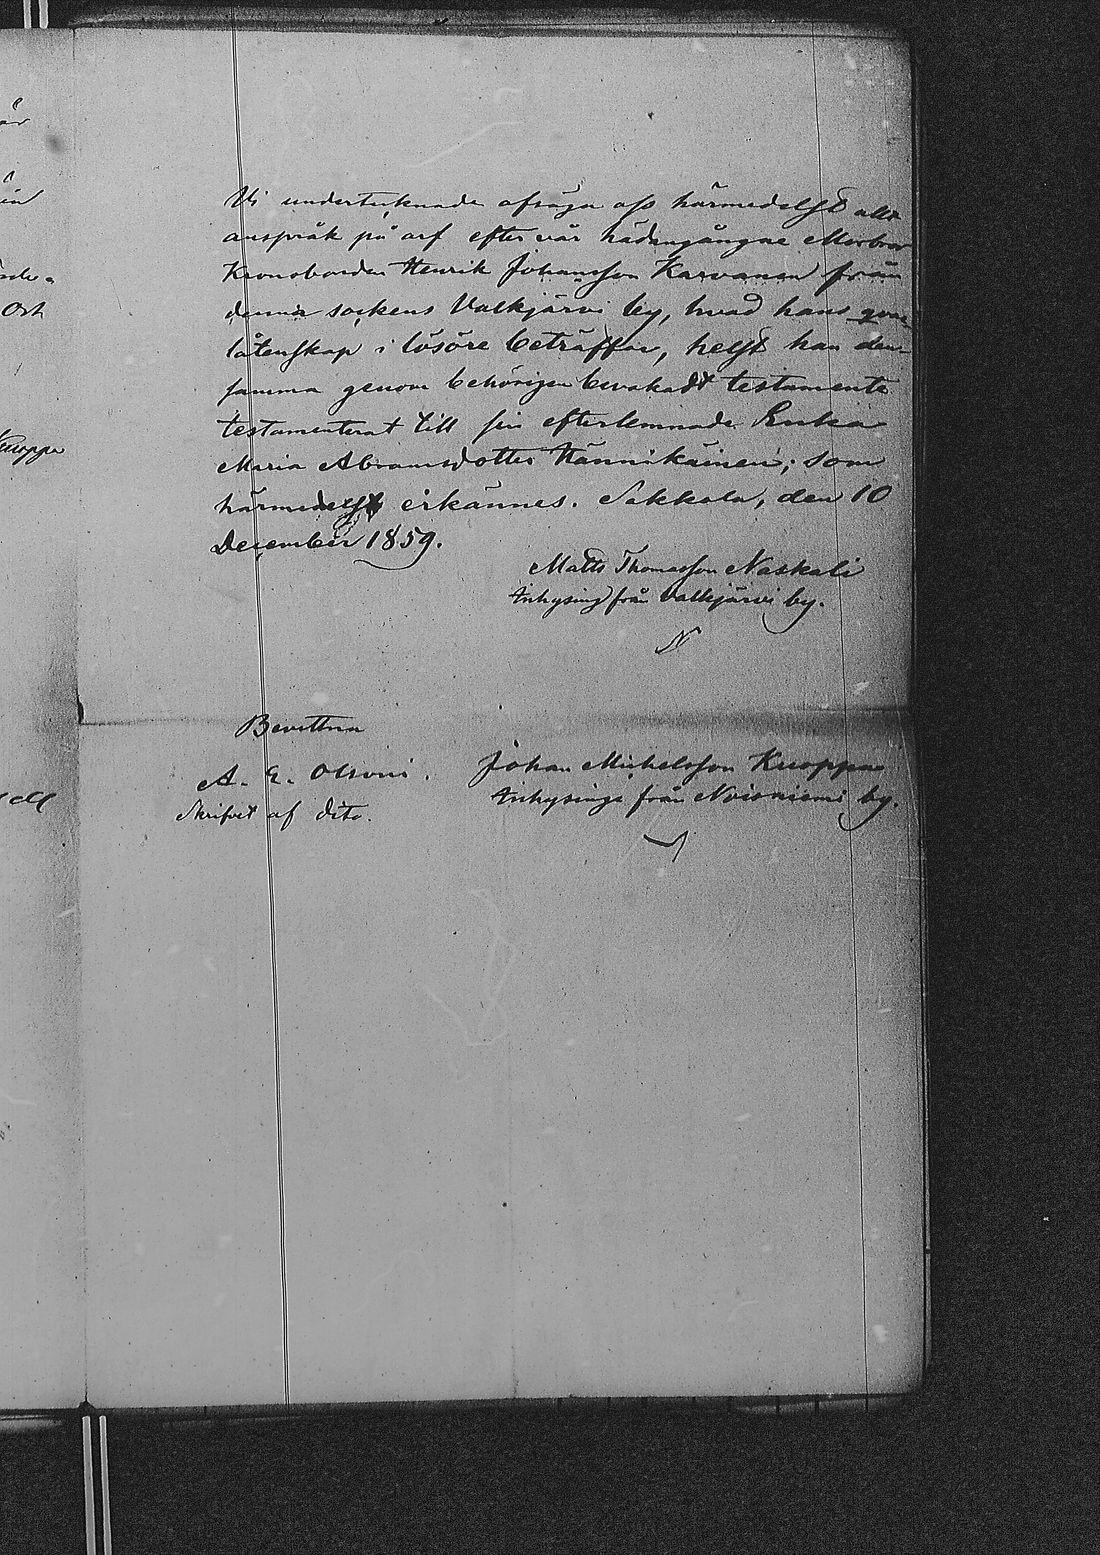 Vi undertecknade afsäga oss härmedelst allt
anspråk på arf efter vår hädangångne Morbror
Kronobonden Henrik Johansson Karvanen från
denna sockens Valkjärvi by, hvad hans qvar-
låtenskap i lösöre beträffar, helst han den-
samma genom behörigen bevakadt testamente
testamenterat till sin efterlemnade Enka
Maria Abramsdotter Hännikäinen; som
härmedelst erkännes. Sakkola, den 10
December 1859.
Matts Thomasson Naskali
Inhysing från Valkjärvi by.
N
Bevittna
A. E. Olsoni.
Skrifvet af dito.
Johan Michelsson Kuoppa
Inhysinge från Noisniemi by.
år
in
Ort
Kuoppa